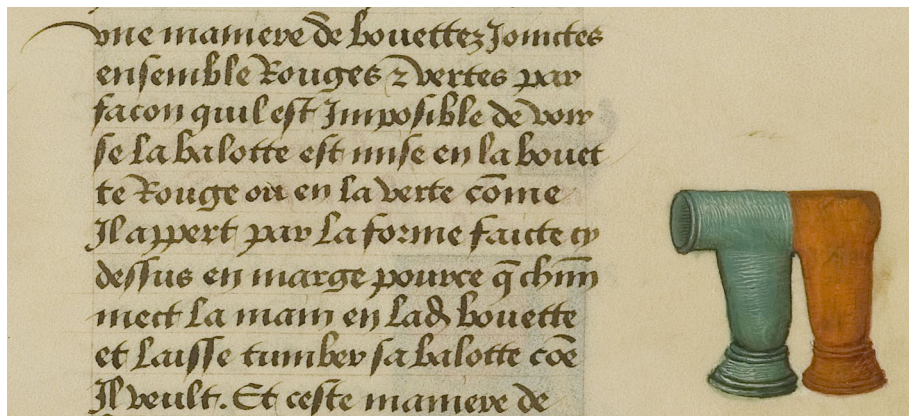 vne maniere de bouettez Joinctes
ensemble Rouges ⁊ vertes par
facon quil est Imposible de voir
se la balotte est mise en la bouet
te Rouge ou en la verte cōme
Il appert par la forme faicte cy
dessus en marge pource q̄ chūn
mect la main en lad bouette
et laisse tumber sa balotte cōe
Il veult. Et ceste maniere de